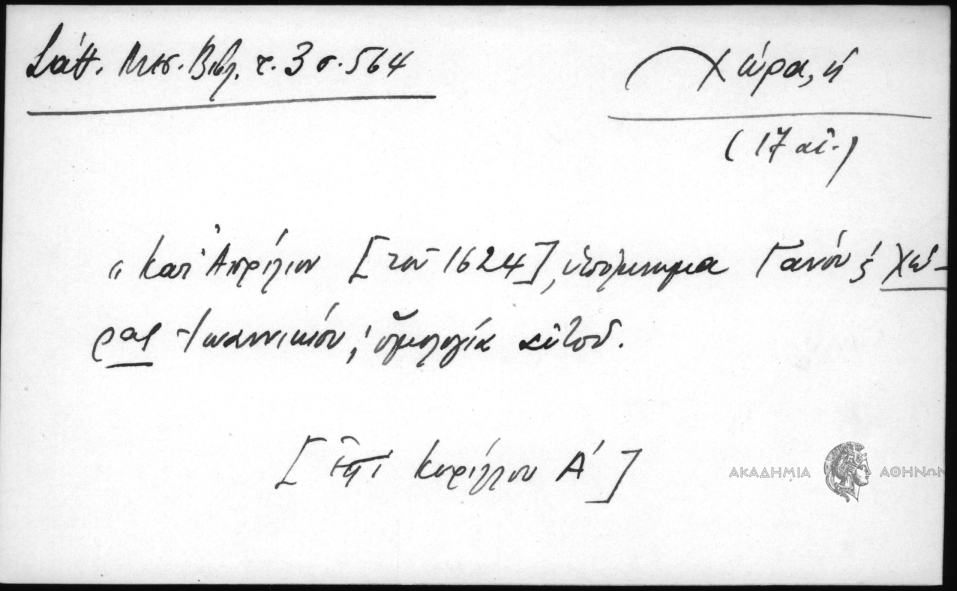 Σάθ. Μεσ. Βιβλ. τ. 3 σ. 564
Χώρα, ἡ
(17 αἰ.)
"κατ' Ἀπρίλιον [τοῦ 1624], ὑπόμνημα Γάνου ϗ Χώ-
ρας Ἰωαννικίου, ὁμολογία αὐτοῦ.
[ἐπὶ Κυρίλλου Α']
ΑΚΑΔΗΜΙΑ ΑΘΗΝΩΝ